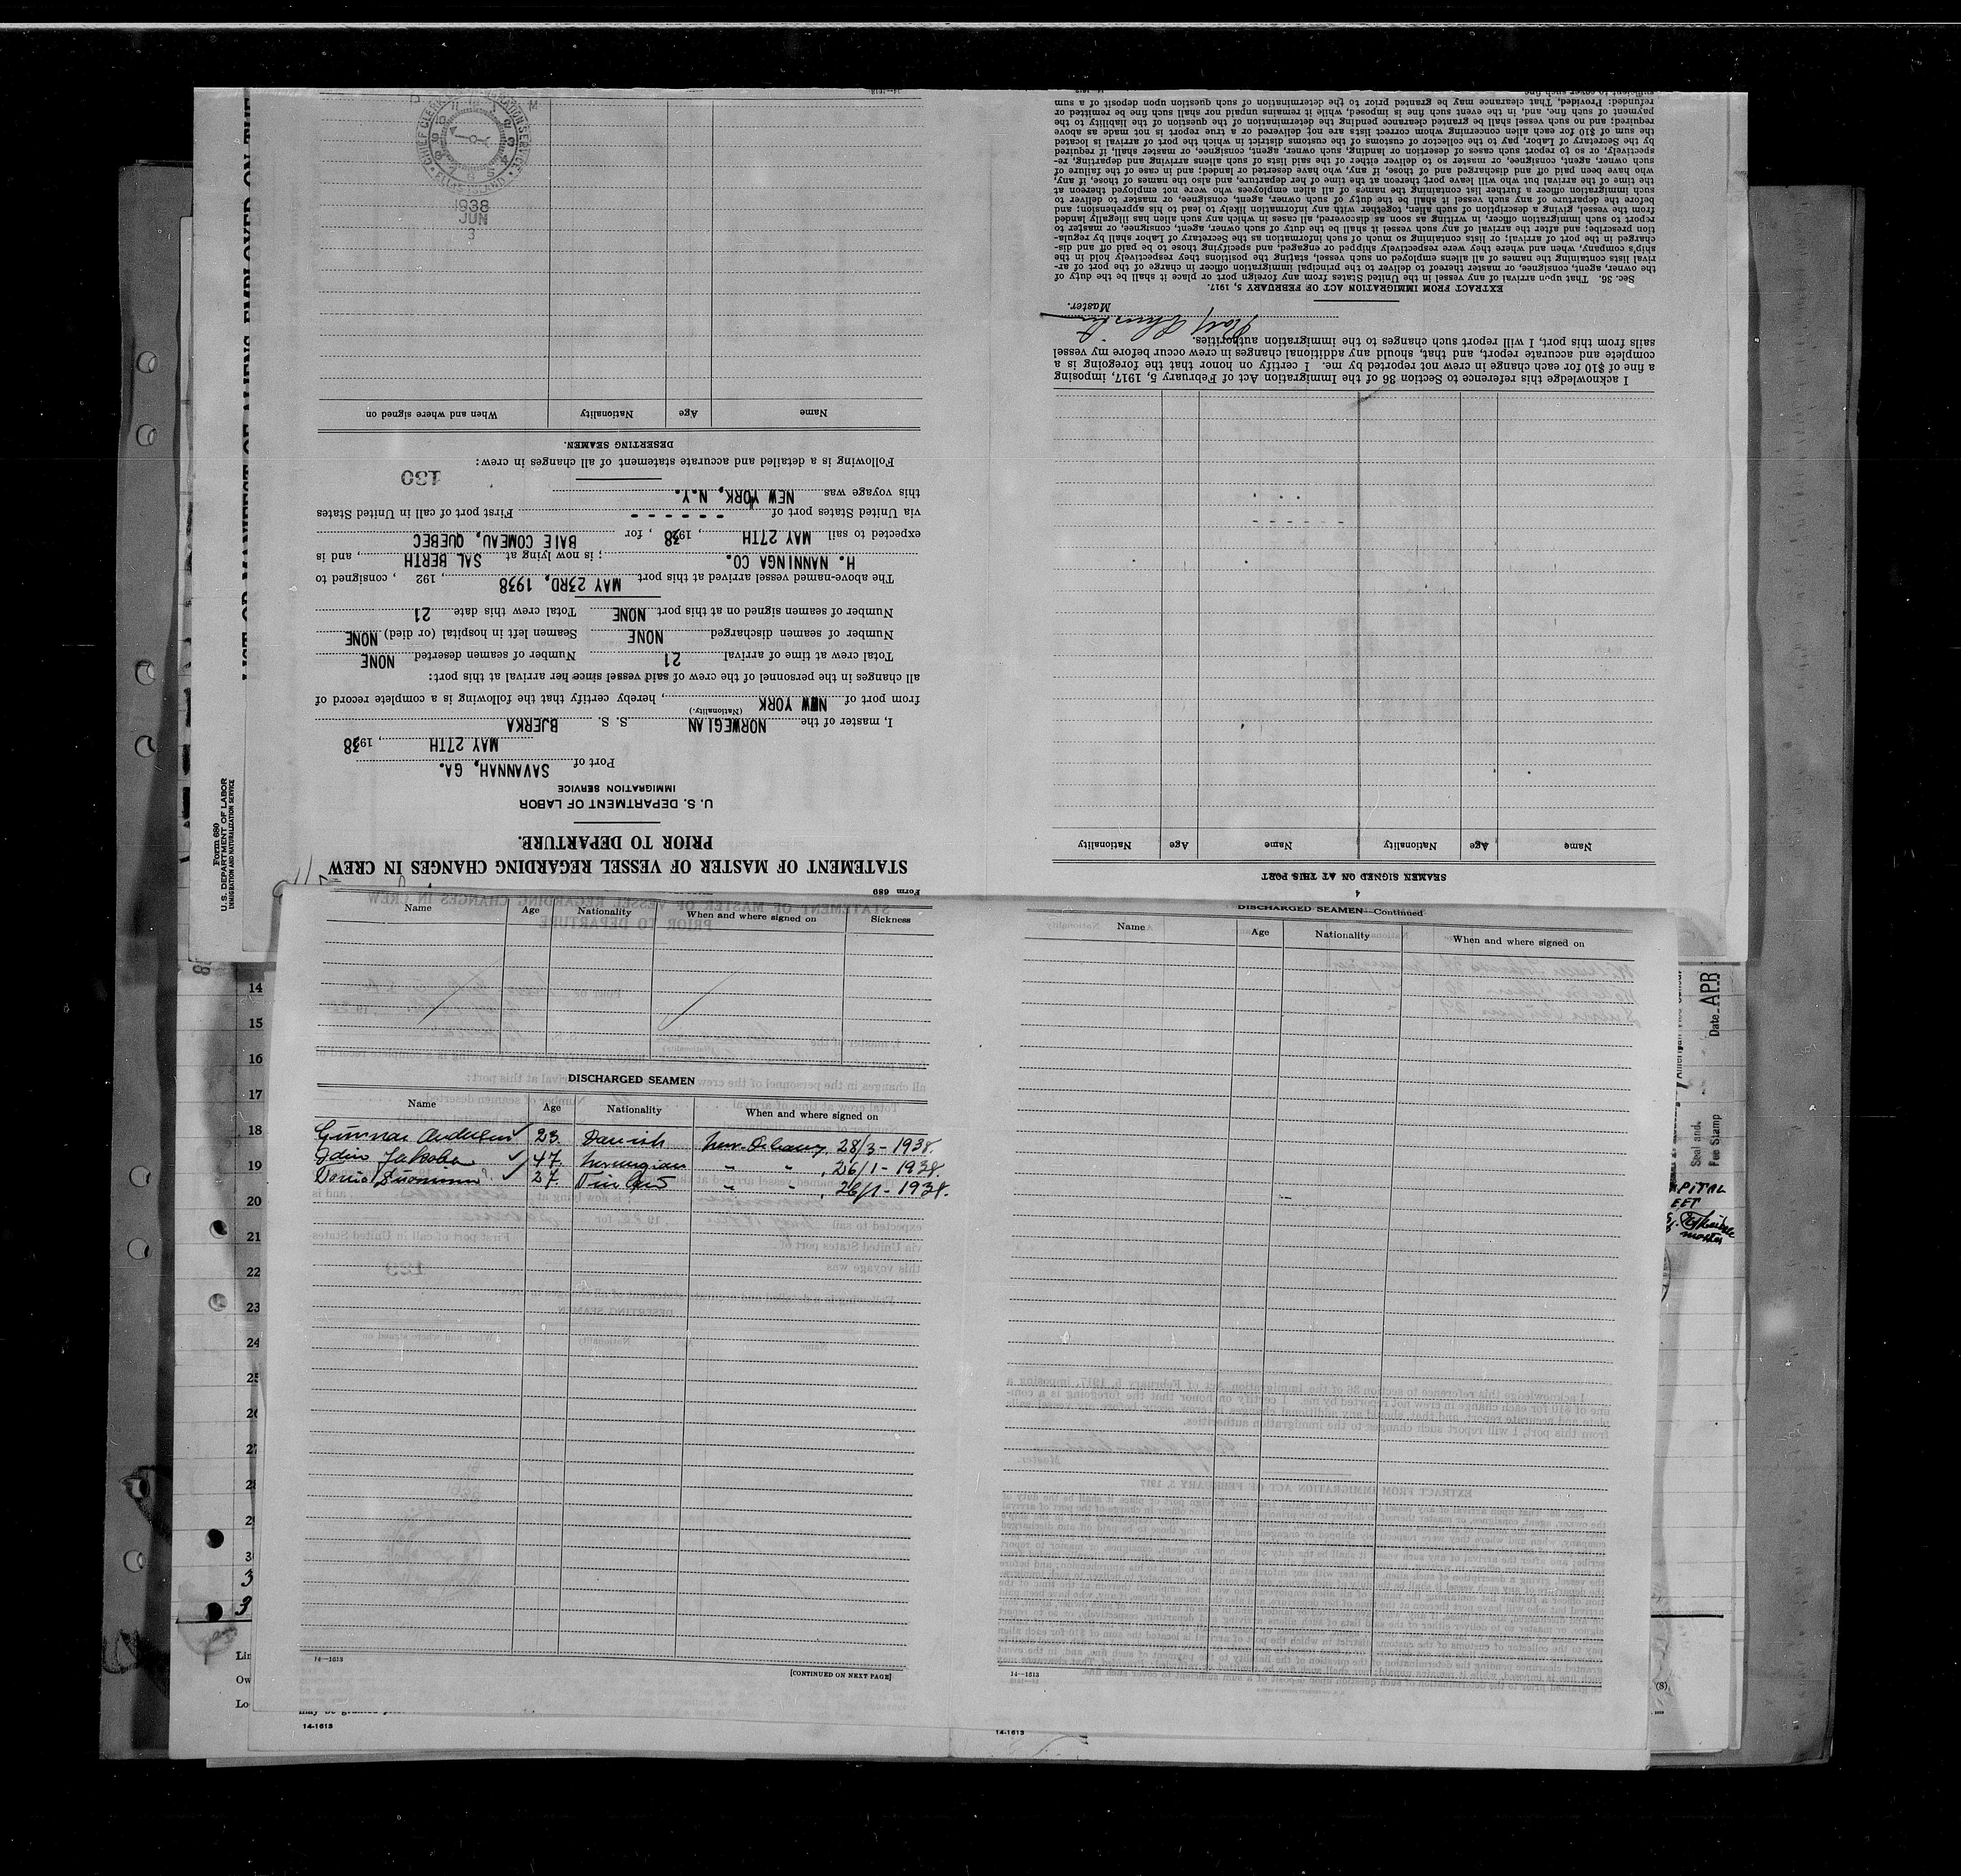 Form 689
STATEMENT OF MASTER OF VESSEL REGARDING CHANGES IN CREW
PRIOR TO DEPARTURE.
U. S. DEPARTMENT OF LABOR
IMMIGRATION SERVICE
Port of SAVANNAH, GA.
MAY 27TH, 1938
I, master of the NORWEGIAN S. S. BJERKA
(Nationality.)
from port of NEW YORK, hereby certify that the following is a complete record of
all changes in the personnel of the crew of said vessel since her arrival at this port:
Total crew at time of arrival 21 Number of seamen deserted NONE
Number of seamen discharged NONE Seamen left in hospital (or died) NONE
Number of seamen signed on at this port NONE Total crew this date 21
The above-named vessel arrived at this port MAY 23RD, 1938, 192 , consigned to
H. NANNINGA CO. ; is now lying at SAL BERTH, and is
expected to sail MAY 27TH, 1938, for BAIE COMEAU, QUEBEC
via United States port of - - - - - - First port of call in United States
this voyage was NEW YORK, N.Y.
130
Following is a detailed and accurate statement of all changes in crew:
DESERTING SEAMEN.
Name Age Nationality When and where signed on
3
JUN
1938
4
SEAMEN SIGNED ON AT THIS PORT
Name Age Nationality Name Age Nationality
I acknowledge this reference to Section 36 of the Immigration Act of February 5, 1917, imposing
a fine of $10 for each change in crew not reported by me. I certify on honor that the foregoing is a
complete and accurate report, and that, should any additional changes in crew occur before my vessel
sails from this port, I will report such changes to the immigration authorities.
Master.
EXTRACT FROM IMMIGRATION ACT OF FEBRUARY 5, 1917.
Sec. 36. That upon arrival of any vessel in the United States from any foreign port or place it shall be the duty of
the owner, agent, consignee, or master thereof to deliver to the principal immigration officer in charge of the port of ar-
rival lists containing the names of all aliens employed on such vessel, stating the positions they respectively hold in the
ship's company, when and where they were respectively shipped or engaged, and specifying those to be paid off and dis-
charged in the port of arrival; or lists containing so much of such information as the Secretary of Labor shall by regula-
tion prescribe; and after the arrival of any such vessel it shall be the duty of such owner, agent, consignee, or master to
report to such immigration officer, in writing, as soon as discovered, all cases in which any such alien has illegally landed
from the vessel, giving a description of such alien, together with any information likely to lead to his apprehension; and
before the departure of any such vessel it shall be the duty of such owner, agent, consignee, or master to deliver to
such immigration officer a further list containing the names of all alien employees who were not employed thereon at
the time of the arrival but who will leave port thereon at the time of her departure, and also the names of those, if any,
who have been paid off and discharged and of those, if any, who have deserted or landed; and in case of the failure of
such owner, agent, consignee, or master so to deliver either of the said lists of such aliens arriving and departing, re-
spectively, or so to report such cases of desertion or landing, such owner, agent, consignee, or master shall, if required
by the Secretary of Labor, pay to the collector of customs of the customs district in which the port of arrival is located
the sum of $10 for each alien concerning whom correct lists are not delivered or a true report is not made as above
required; and no such vessel shall be granted clearance pending the determination of the question of the liability to the
payment of such fine, and, in the event such fine is imposed, while it remains unpaid nor shall such fine be remitted or
refunded: Provided, That clearance may be granted prior to the determination of such question upon deposit of a sum
sufficient to cover such fine
Form 680
U. S. DEPARTMENT OF LABOR
IMMIGRATION AND NATURALIZATION SERVICE
Name Age Nationality When and where signed on Sickness
DISCHARGED SEAMEN
Name Age Nationality When and where signed on
Gunnar Andersen 23. Danish New Orleans, 28/3-1938.
47. Norwegian " " , 26/1-1938.
27. " " , 26/1-1938.
14—1613
[CONTINUED ON NEXT PAGE]
DISCHARGED SEAMEN—Continued
Name Age Nationality When and where signed on
14—1613
14
15
16
17
18
19
20
21
22
23
24
14-1613
14-1613
Date APR
Seal and
Fee Stamp
master